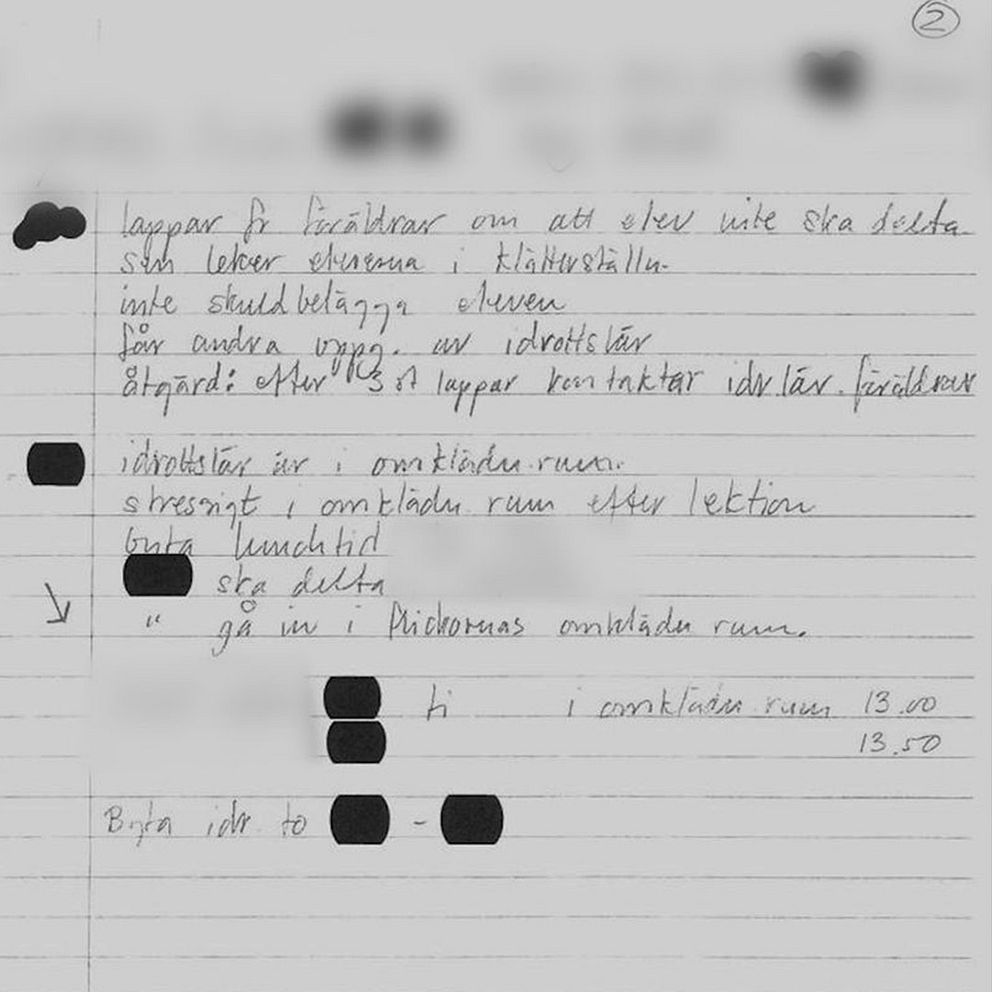 2
lappar fr föräldrar om att elev inte ska delta.
sen leker eleverna i klätterställn.
inte skuldbelägga eleven
får andra uppg. av idrottslär
åtgärd: efter 3 st lappar kontaktar idr lär. föräldrar
idrottslär är i omklädn.rum.
stressigt i omklädn rum efter lektion
byta lunchtid
ska delta
" gå in i flickornas omklädn rum.
ti i omklädn rum 13.00
13.50
Byta idr to -